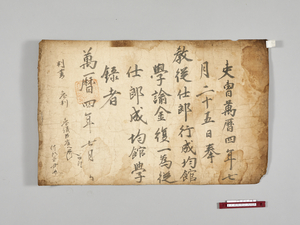 吏曹萬曆四年七
月二十五日奉
教從仕郎行成均館
學諭金復一爲從
仕郎成均館學
錄者
萬曆四年七月 日